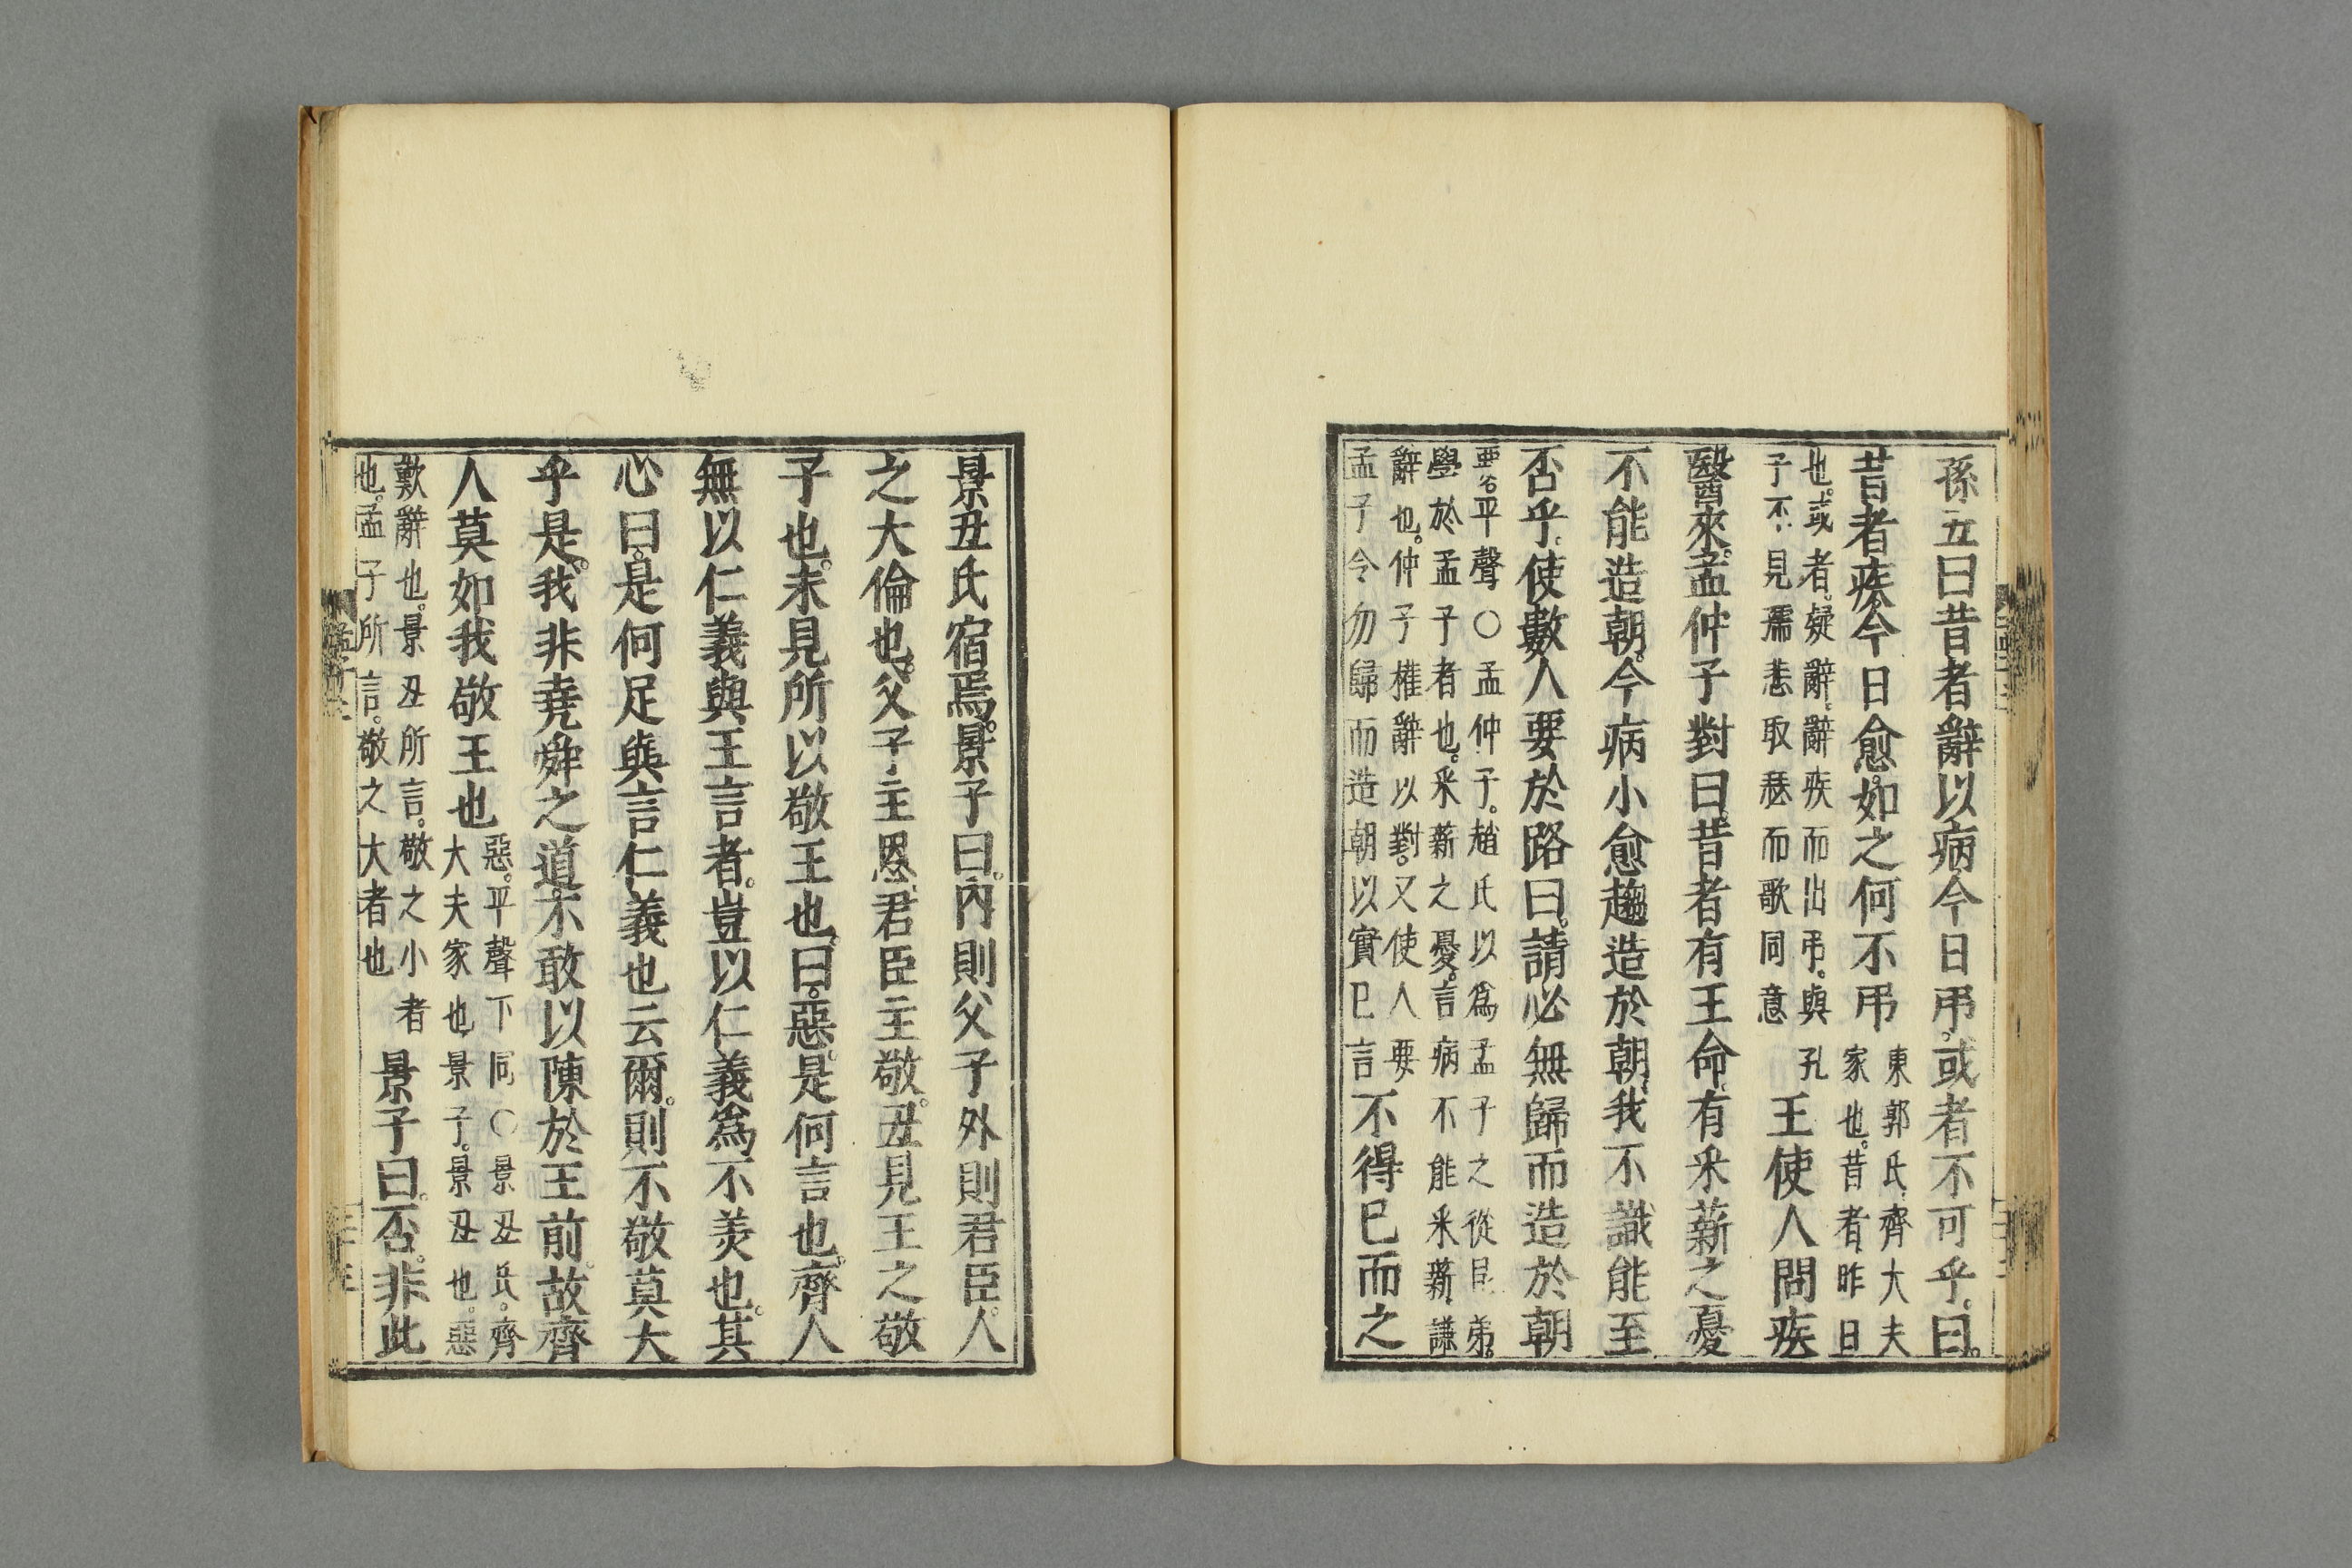 孫丑曰昔者辭以病今日弔。或者不可乎。曰。
昔者疾今日愈。如之何不弔
東郭氏齊大夫
家也。昔者昨日
也。或者。疑辭。辭疾而出弔。與孔
子不見孺悲取瑟而歌同意
王使人問疾
醫來。孟仲子對曰。昔者有王命。有采薪之憂
不能造朝。今病小愈趨造於朝。我不識能至
否乎。使數人要於路曰。請必無歸而造於朝
要。平聲○孟仲子。趙氏以爲孟子之從昆弟。
學於孟子者也。采薪之憂。言病不能采薪。謙
辭也。仲子權辭以對。又使人要
孟子令勿歸而造朝以實已言
不得已而之
景丑氏宿焉。景子曰。內則父子外則君臣。人
之大倫也。父子主恩。君臣主敬。丑見王之敬
子也。未見所以敬王也。曰。惡。是何言也。齊人
無以仁義與王言者。豈以仁義爲不美也。其
心曰。是何足與言仁義也云爾。則不敬莫大
乎是。我非堯舜之道不敢以陳於王前。故齊
人莫如我敬王也
惡。平聲下同○景丑氏。齊
大夫家也景子。景丑也。惡
歎辭也。景丑所言。敬之小者
也。孟子所言。敬之大者也
景子曰。否。非此